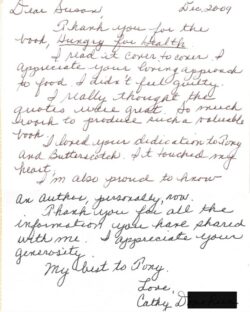 Dear Susan, Dec. 2009
Thank you for the
book, Hungry for Health
I read it cover to cover. I
appreciate your loving approach
to food. I didn't feel guilty.
I really thought the
quotes were great. So much
work to produce such a valuable
book.
I loved your dedication to Pony
and Butterscotch. It touched my
heart.
I'm also proud to know
an author, personally, now.
Thank you for all the
information you have shared
with me. I appreciate your
generosity.
My best to Pony.
Love,
Cathy